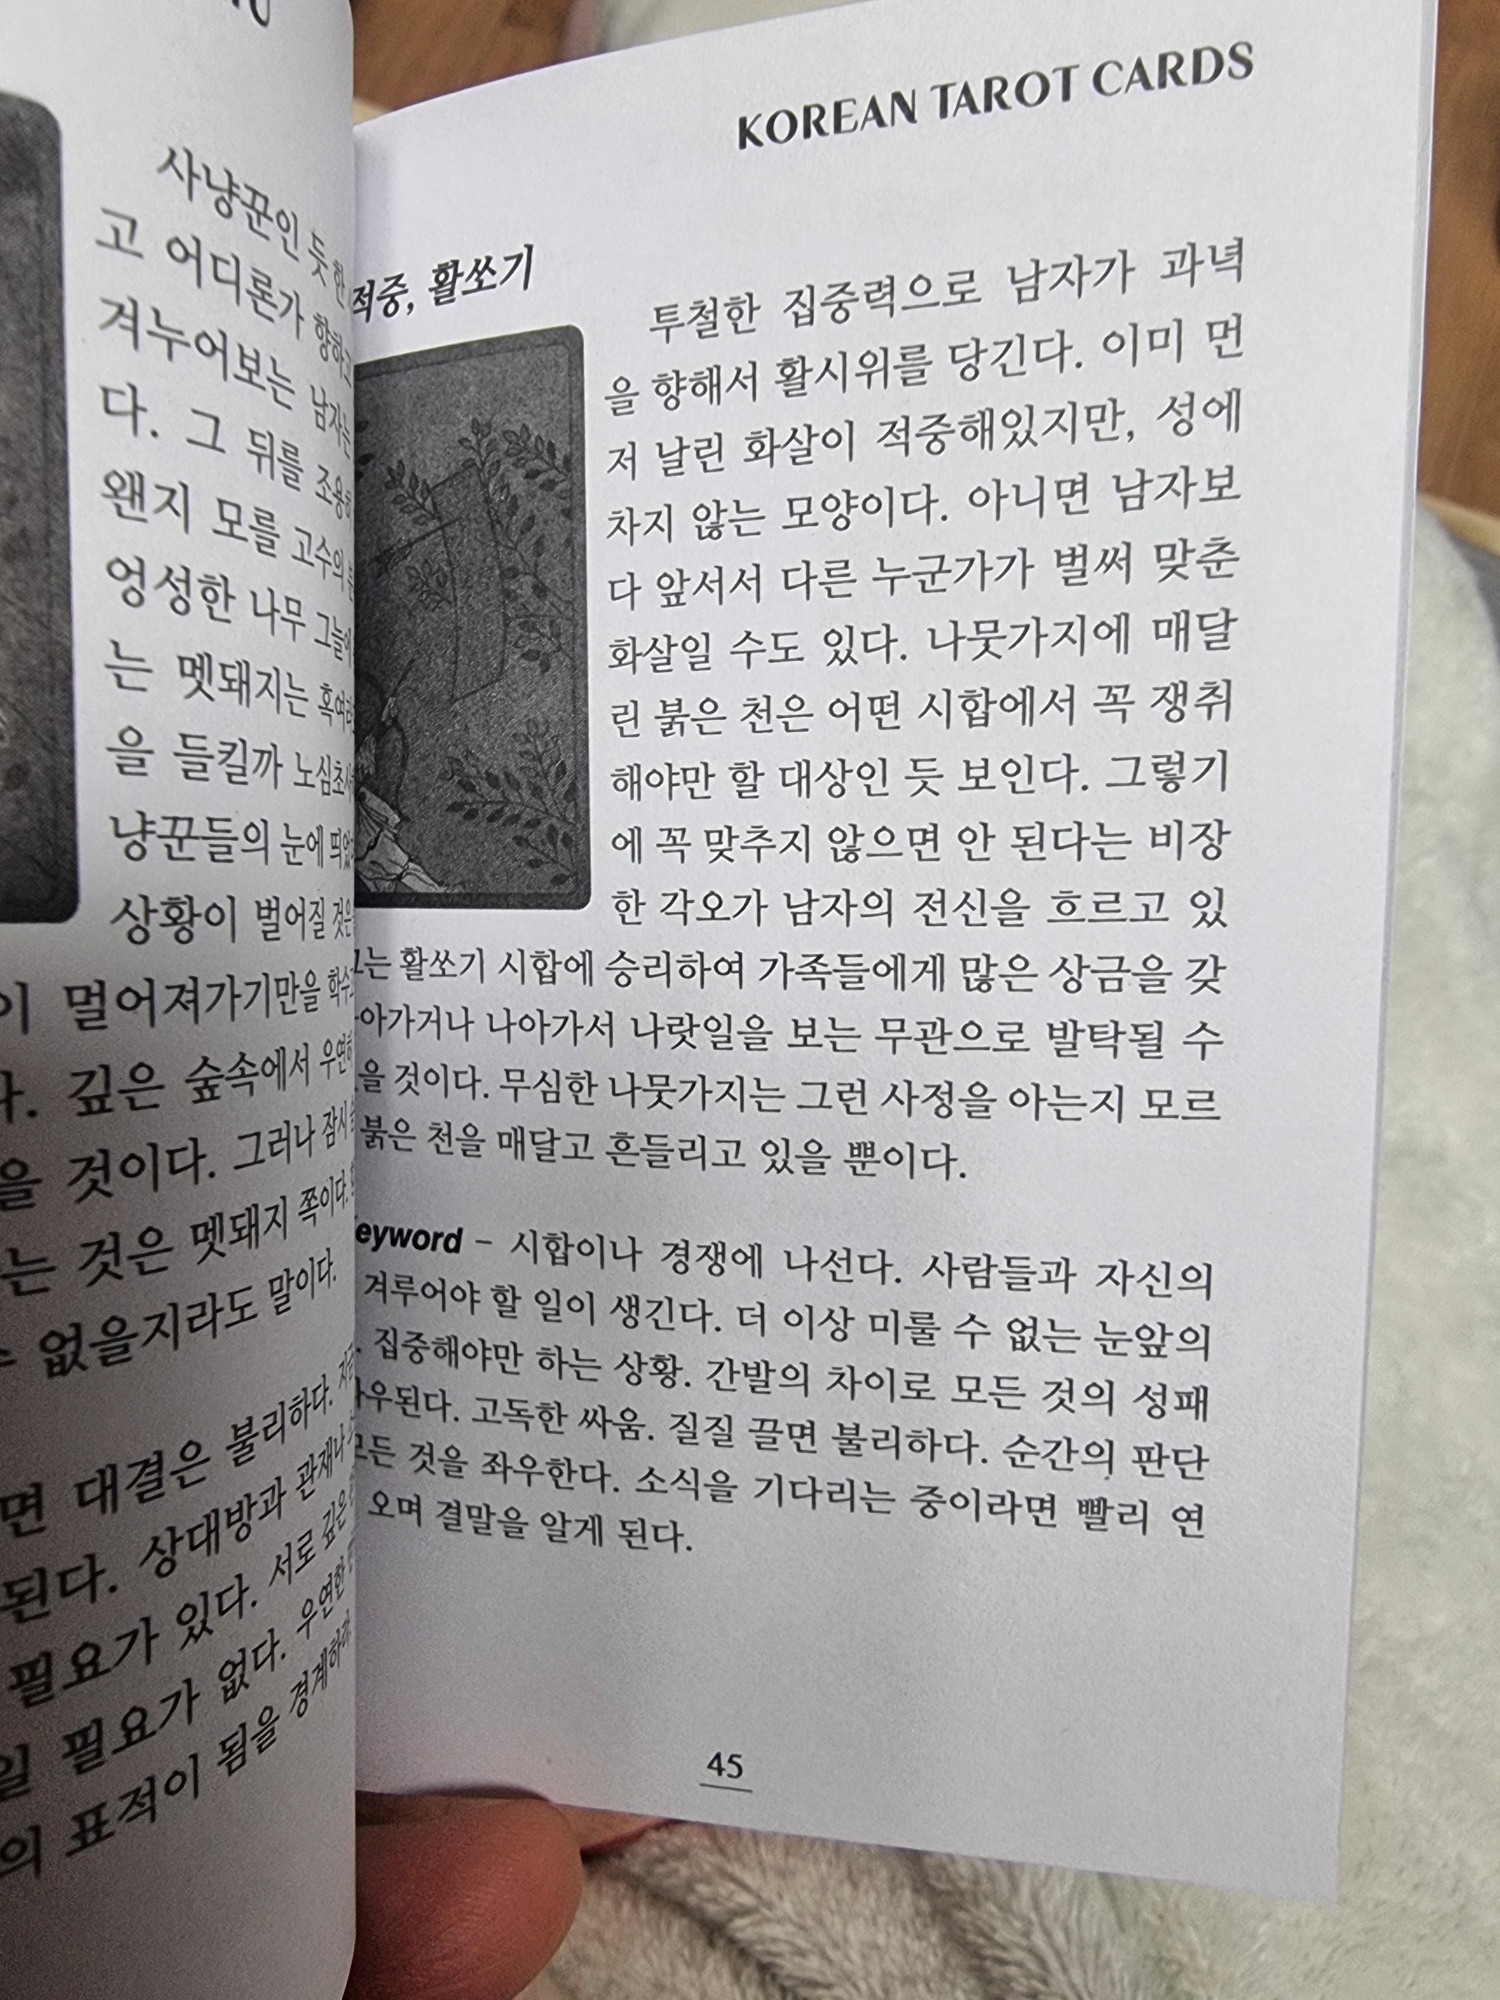 사냥꾼인 듯 한
고 어디론가 향하고
겨누어보는 남자는
다. 그 뒤를 조용히
왠지 모를 고수의
엉성한 나무 그늘에
는 멧돼지는 혹여라
을 들킬까 노심초사
냥꾼들의 눈에 띄었
상황이 벌어질 것은
이 멀어져가기만을 학수고
다. 깊은 숲속에서 우연히
을 것이다. 그러나 잠시
는 것은 멧돼지 쪽이다.
수 없을지라도 말이다.
면 대결은 불리하다.
된다. 상대방과 관재나
필요가 있다. 서로 깊은
일 필요가 없다. 우연한
의 표적이 됨을 경계하라.
KOREAN TAROT CARDS
적중, 활쏘기
투철한 집중력으로 남자가 과녁
을 향해서 활시위를 당긴다. 이미 먼
저 날린 화살이 적중해있지만, 성에
차지 않는 모양이다. 아니면 남자보
다 앞서서 다른 누군가가 벌써 맞춘
화살일 수도 있다. 나뭇가지에 매달
린 붉은 천은 어떤 시합에서 꼭 쟁취
해야만 할 대상인 듯 보인다. 그렇기
에 꼭 맞추지 않으면 안 된다는 비장
한 각오가 남자의 전신을 흐르고 있
그는 활쏘기 시합에 승리하여 가족들에게 많은 상금을 갖
아가거나 나아가서 나랏일을 보는 무관으로 발탁될 수
을 것이다. 무심한 나뭇가지는 그런 사정을 아는지 모르
붉은 천을 매달고 흔들리고 있을 뿐이다.
Keyword - 시합이나 경쟁에 나선다. 사람들과 자신의
겨루어야 할 일이 생긴다. 더 이상 미룰 수 없는 눈앞의
집중해야만 하는 상황. 간발의 차이로 모든 것의 성패
좌우된다. 고독한 싸움. 질질 끌면 불리하다. 순간의 판단
모든 것을 좌우한다. 소식을 기다리는 중이라면 빨리 연
오며 결말을 알게 된다.
45